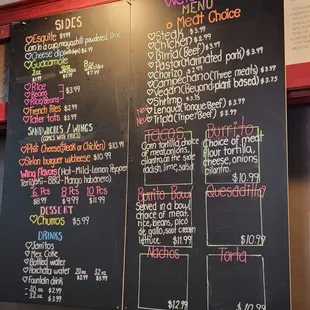 SIDES
Esquite
Corn in a cup, mayo, chili powdered, lime
Cheese dip $6.99
Guacamole
2oz 4oz 8oz
Rice
Beans $3.99
Rice/Beans
French fries $2.99
Tater tots $3.99
SANDWICHES / WINGS
(COMES WITH FRIES)
Philly cheese(Steak or Chicken) $10.99
Sirloin burger w/cheese $10.99
Wing Flavors (Hot-Mild-Lemon Pepper
Teriyaki-BBQ-Mango habanero)
6 pcs 8 pcs 10 pcs
$8.99 $9.99 $11.99
DESSERT
Churros $5.99
DRINKS
Jarritos
Mex Coke
Bottled water
Horchata water 20 oz 32 oz
Fountain drink $2.99 $3.99
- 20 oz $2.99
- 32 oz $3.99
MENU
Meat Choice
Steak $3.99
Chicken $2.99
Birria (Beef) $3.99
Pastor(Marinated pork) $3.99
Chorizo $2.99
Campechano (Three meats) $3.99
Vegan (Beyond plant based) $3.99
Shrimp $3.99
New Lengua (Tongue Beef) $3.99
New Tripa (Tripe Beef) $3.99
Tacos
Corn tortilla, choice
of meat, onions,
cilantro, on the side
radish, lime, salsa
Burrito
Choice of meat
Flour tortilla,
cheese, onions
cilantro.
$10.99
Burrito Bowl
Served in a bowl
choice of meat.
rice, beans, pico
de gallo, sour cream
lettuce $11.99
Quesadilla
$10.99
Nachos
$12.99
Torta
$10.99